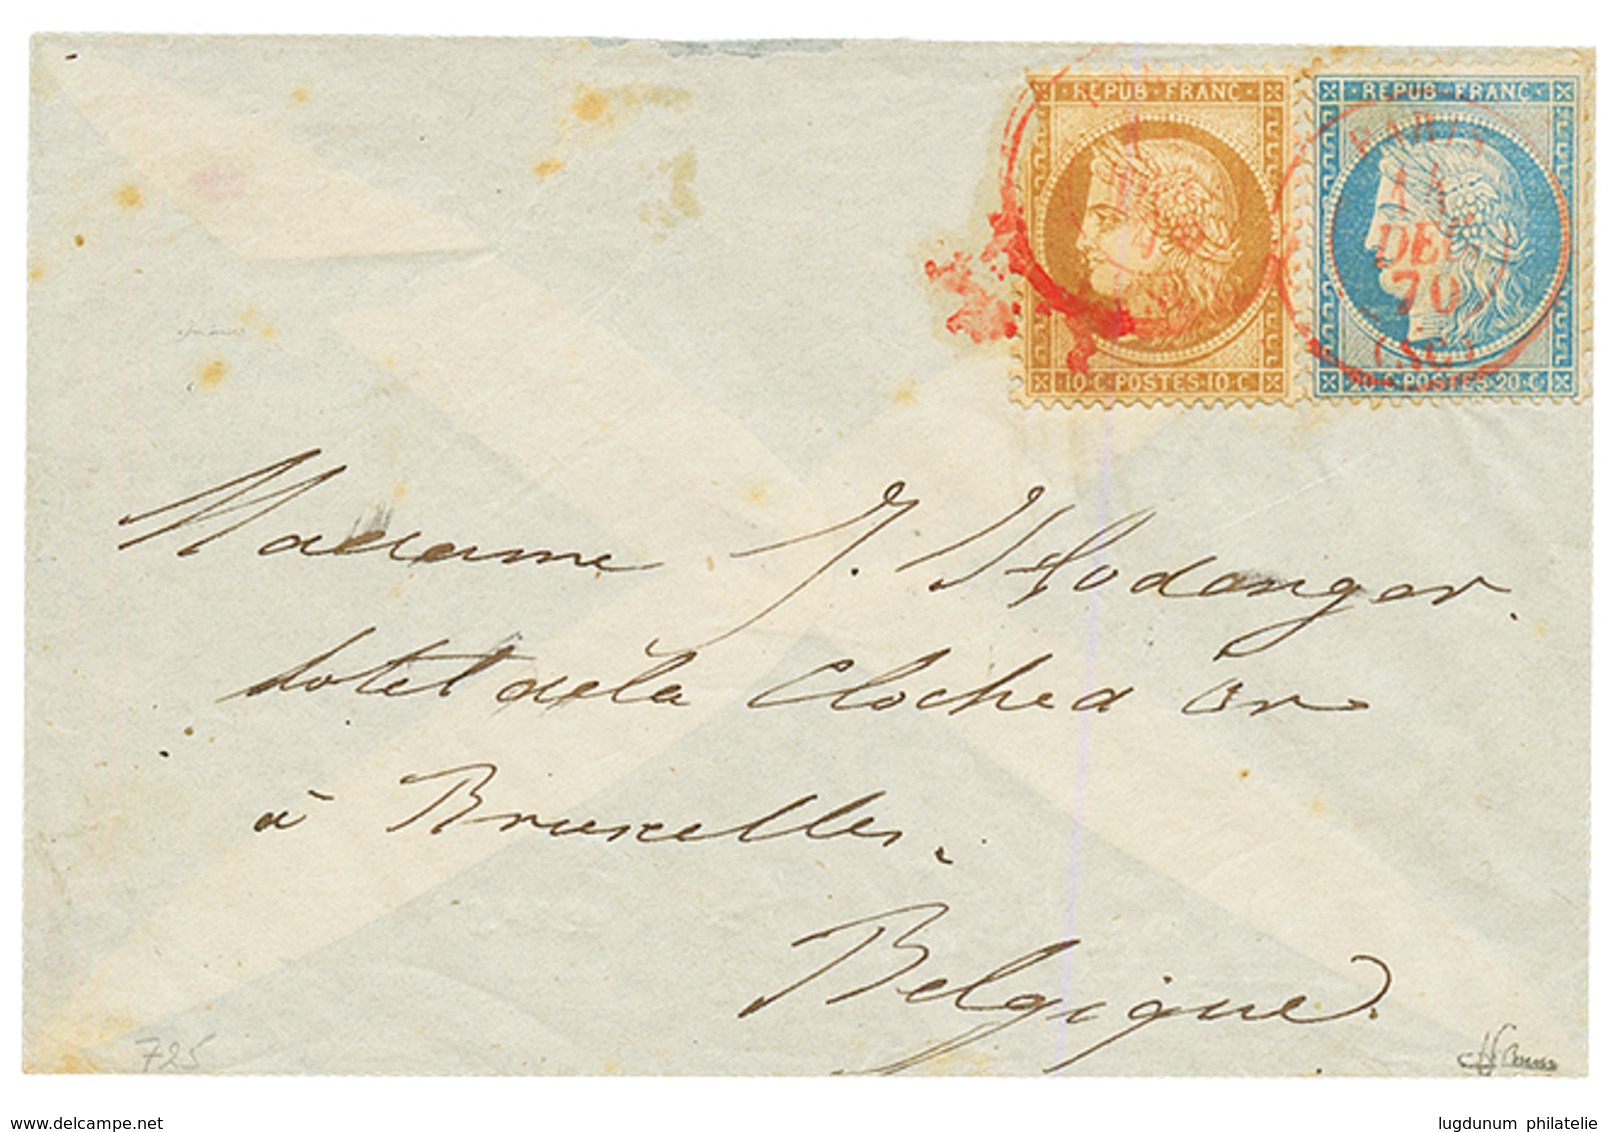 REPUB·FRANC
REPUB·FRANC
PARIS
14
DEC
70
(SC)
10·C·POSTES·10·C
20·C·POSTES·20·C
Madame J. Hodanger.
hotel de la Cloche d Or
à Bruxelles.
Belgique.
725
delcampe.net
lugdunum philatelie